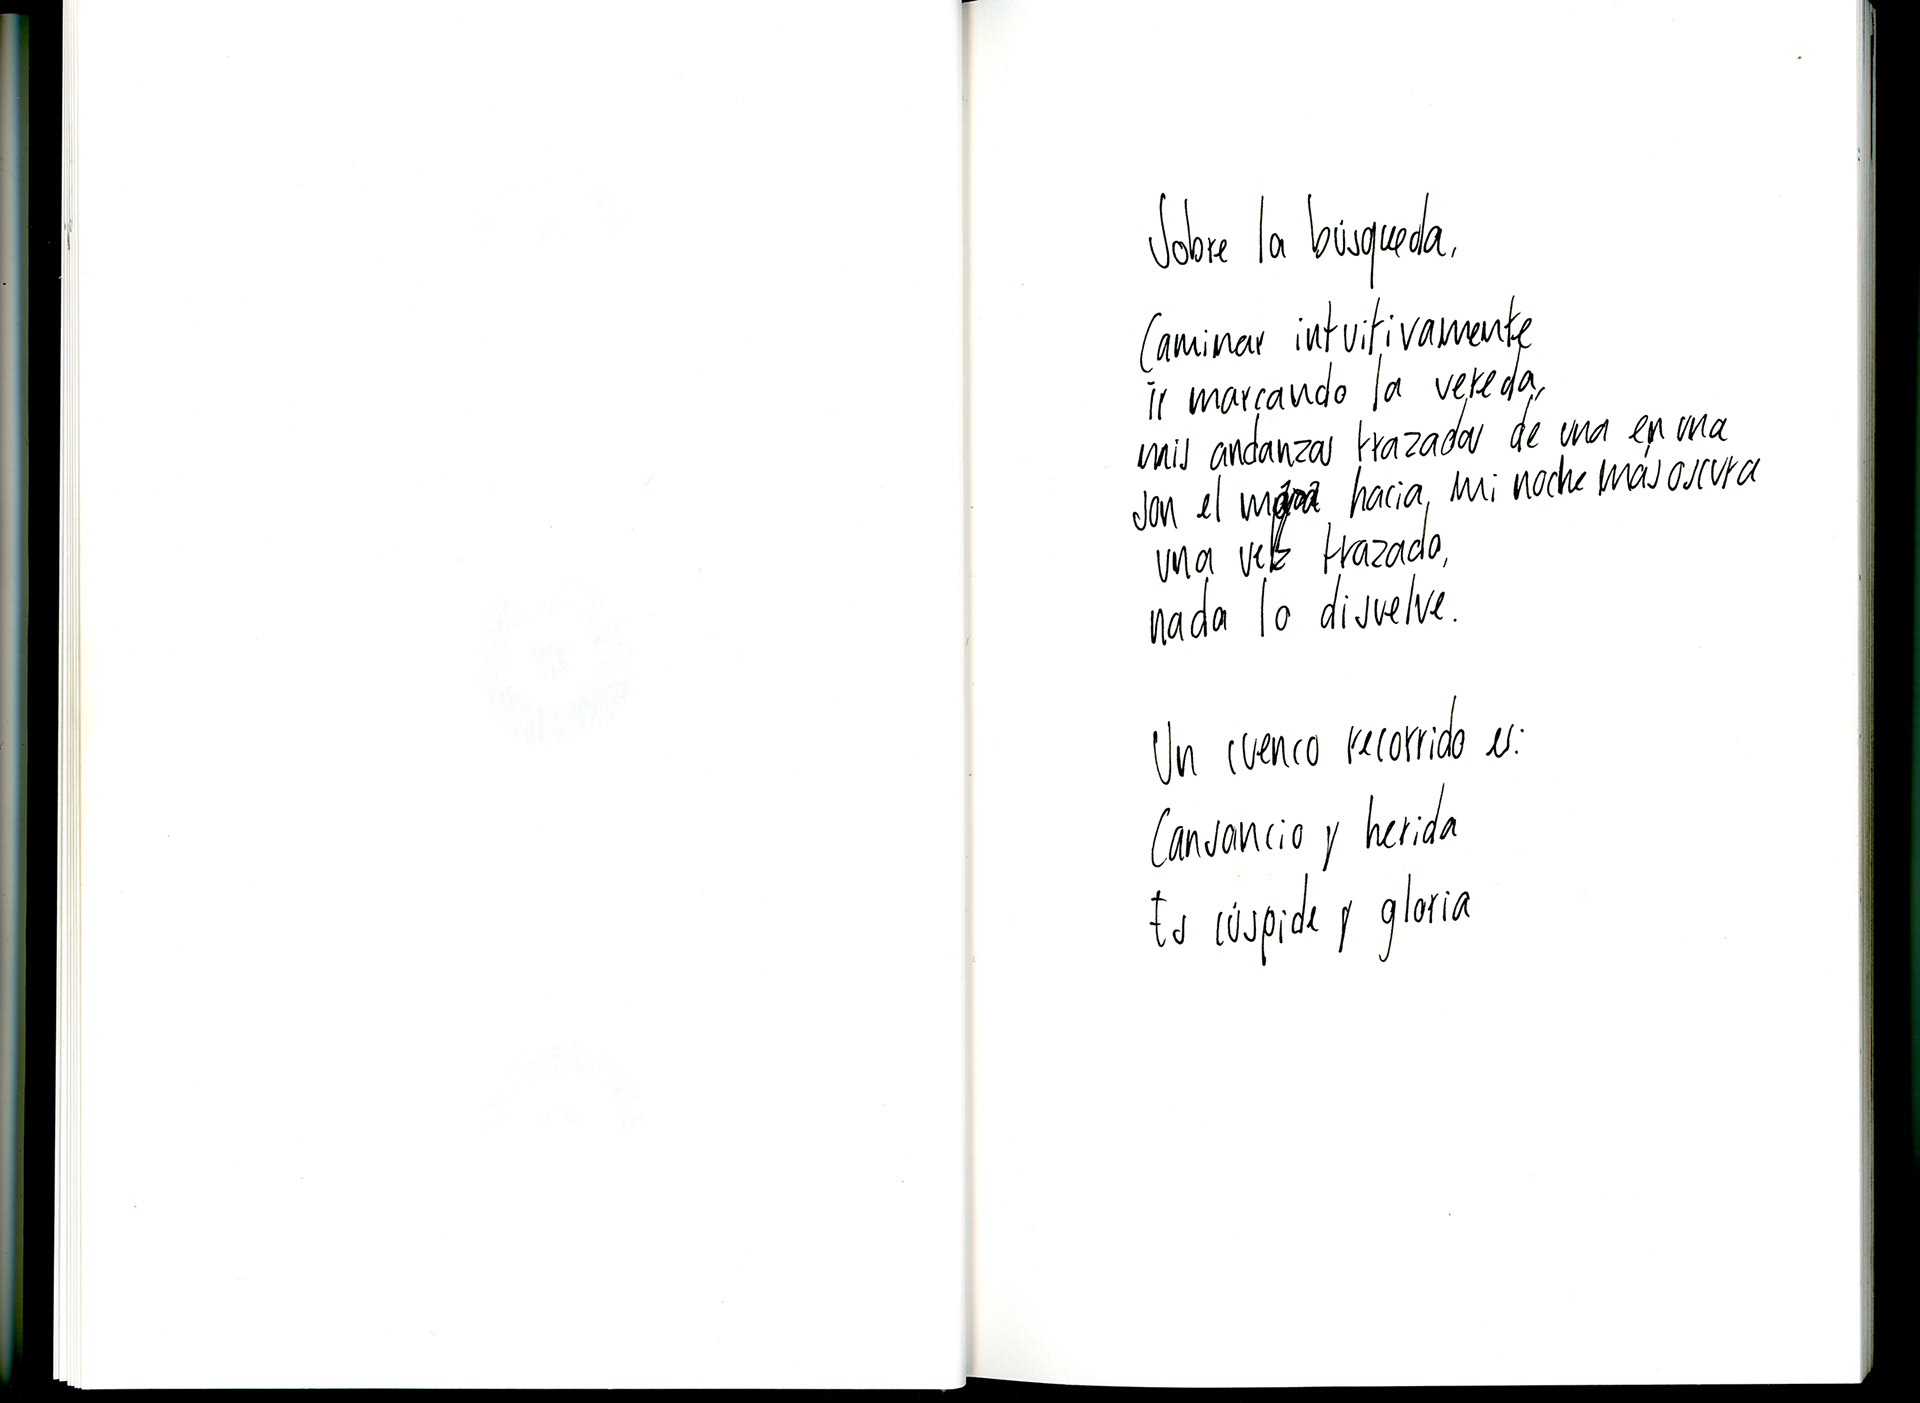 Sobre la búsqueda,
Caminar intuitivamente
Ir marcando la vereda,
mis andanzas trazadas de una en una
son el mapa hacia, mi noche más oscura
una vez trazado,
nada lo disuelve.
Un cuenco recorrido es:
Cansancio y herida
Es cúspide y gloria